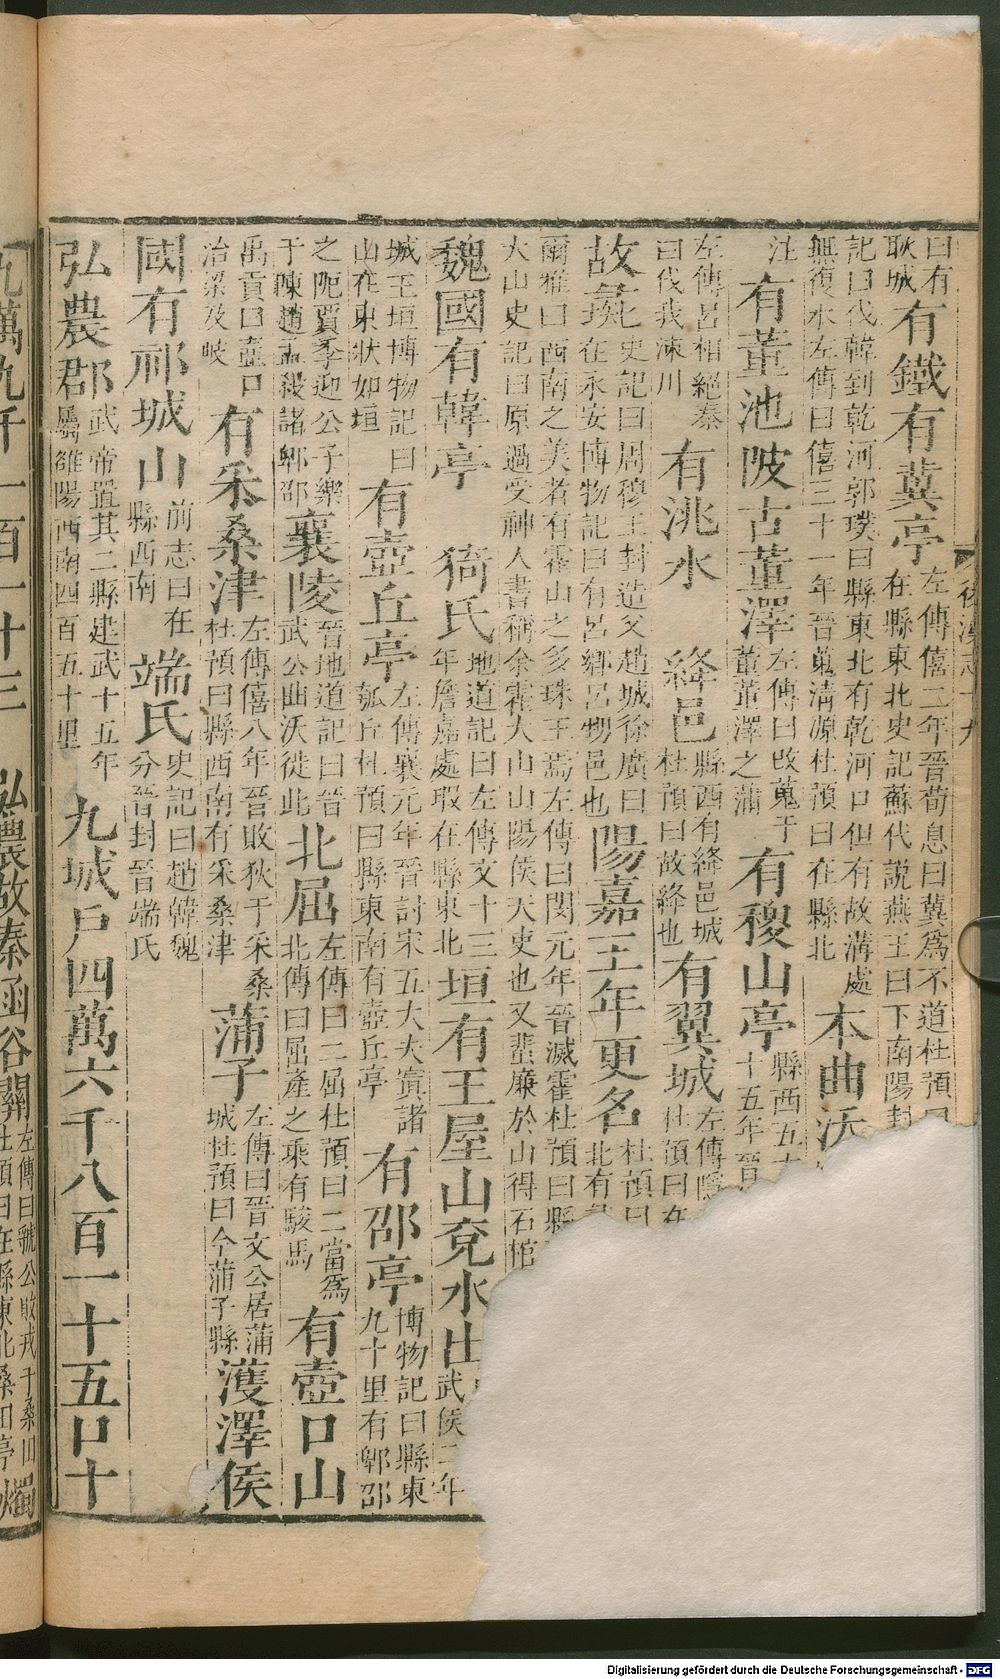 曰有
耿城
有鐵有冀亭
左傳僖二年晉荀息曰冀為不道杜預曰
在縣東北史記蘇代說燕王曰下南陽封
記曰伐韓到乾河郭璞曰縣東北有乾河口但有故溝處
無復水左傳曰僖三十一年晉蒐清源杜預曰在縣北
本曲沃
注
有董池陂古董澤
左傳曰改蒐于
董董澤之蒲
有稷山亭
縣西五十
十五年晉
左傳呂相絕秦
曰伐我涑川
有洮水
絳邑
縣西有絳邑城
杜預曰故絳也
有翼城
左傳隱
杜預曰在
故彘
史記曰周穆王封造父趙城徐廣曰
在永安博物記曰有呂鄉呂甥邑也
陽嘉三年更名
杜預曰
北有
爾雅曰西南之美者有霍山之多珠玉焉左傳曰閔元年晉滅霍杜預曰縣
大山史記曰原過受神人書稱余霍大山山陽侯天吏也又蜚廉於山得石棺
魏國有韓亭
猗氏
地道記曰左傳文十三
年詹嘉處瑕在縣東北
垣有王屋山兗水出
武侯二年
城王垣博物記曰
山在東狀如垣
有壺丘亭
左傳襄元年晉討宋五大夫寘諸
瓠丘杜預曰縣東南有壺丘亭
有邵亭
博物記曰縣東
九十里有郫邵
之阨賈季迎公子樂
于陳趙孟殺諸郫邵
襄陵
晉地道記曰晉
武公曲沃徙此
北屈
左傳曰二屈杜預曰二當為
北傳曰屈產之乘有駿馬
有壺口山
禹貢曰壺口
治梁及岐
有采桑津
左傳僖八年晉敗狄于采桑
杜預曰縣西南有采桑津
蒲子
左傳曰晉文公居蒲
城杜預曰今蒲子縣
濩澤侯
國有祁城山
前志曰在
縣西南
端氏
史記曰趙韓魏
分晉封晉端氏
弘農郡
武帝置其二縣建武十五年
屬雒陽西南四百五十里
九城戶四萬六千八百一十五口十
九萬九千一百一十三
弘農故秦函谷關
左傳曰虢公敗戎于桑田
杜預曰在縣東北桑田亭
燭
Digitalisierung gefördert durch die Deutsche Forschungsgemeinschaft - DFG